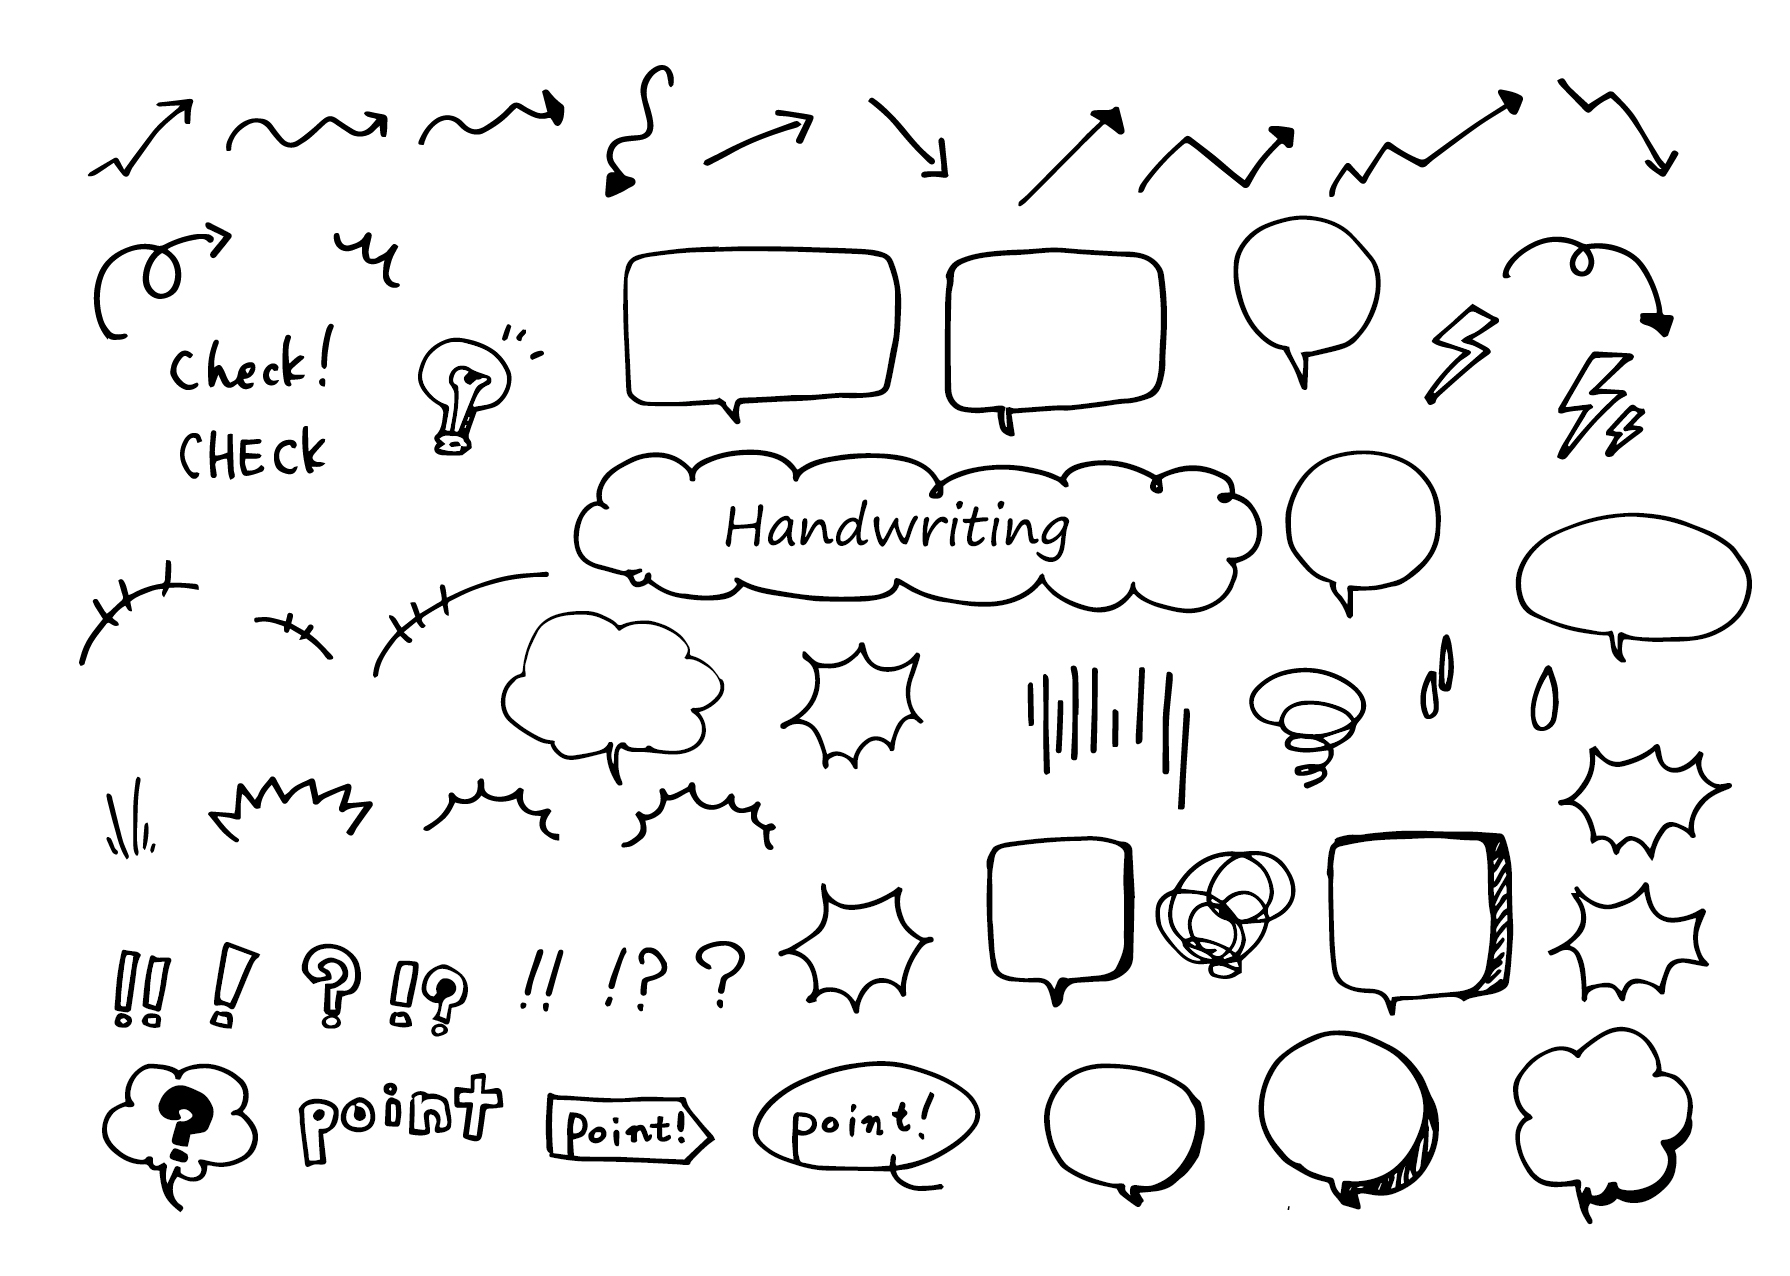 Check!
CHECK
Handwriting
!! ! ? !? !! !? ?
? point Point! point!